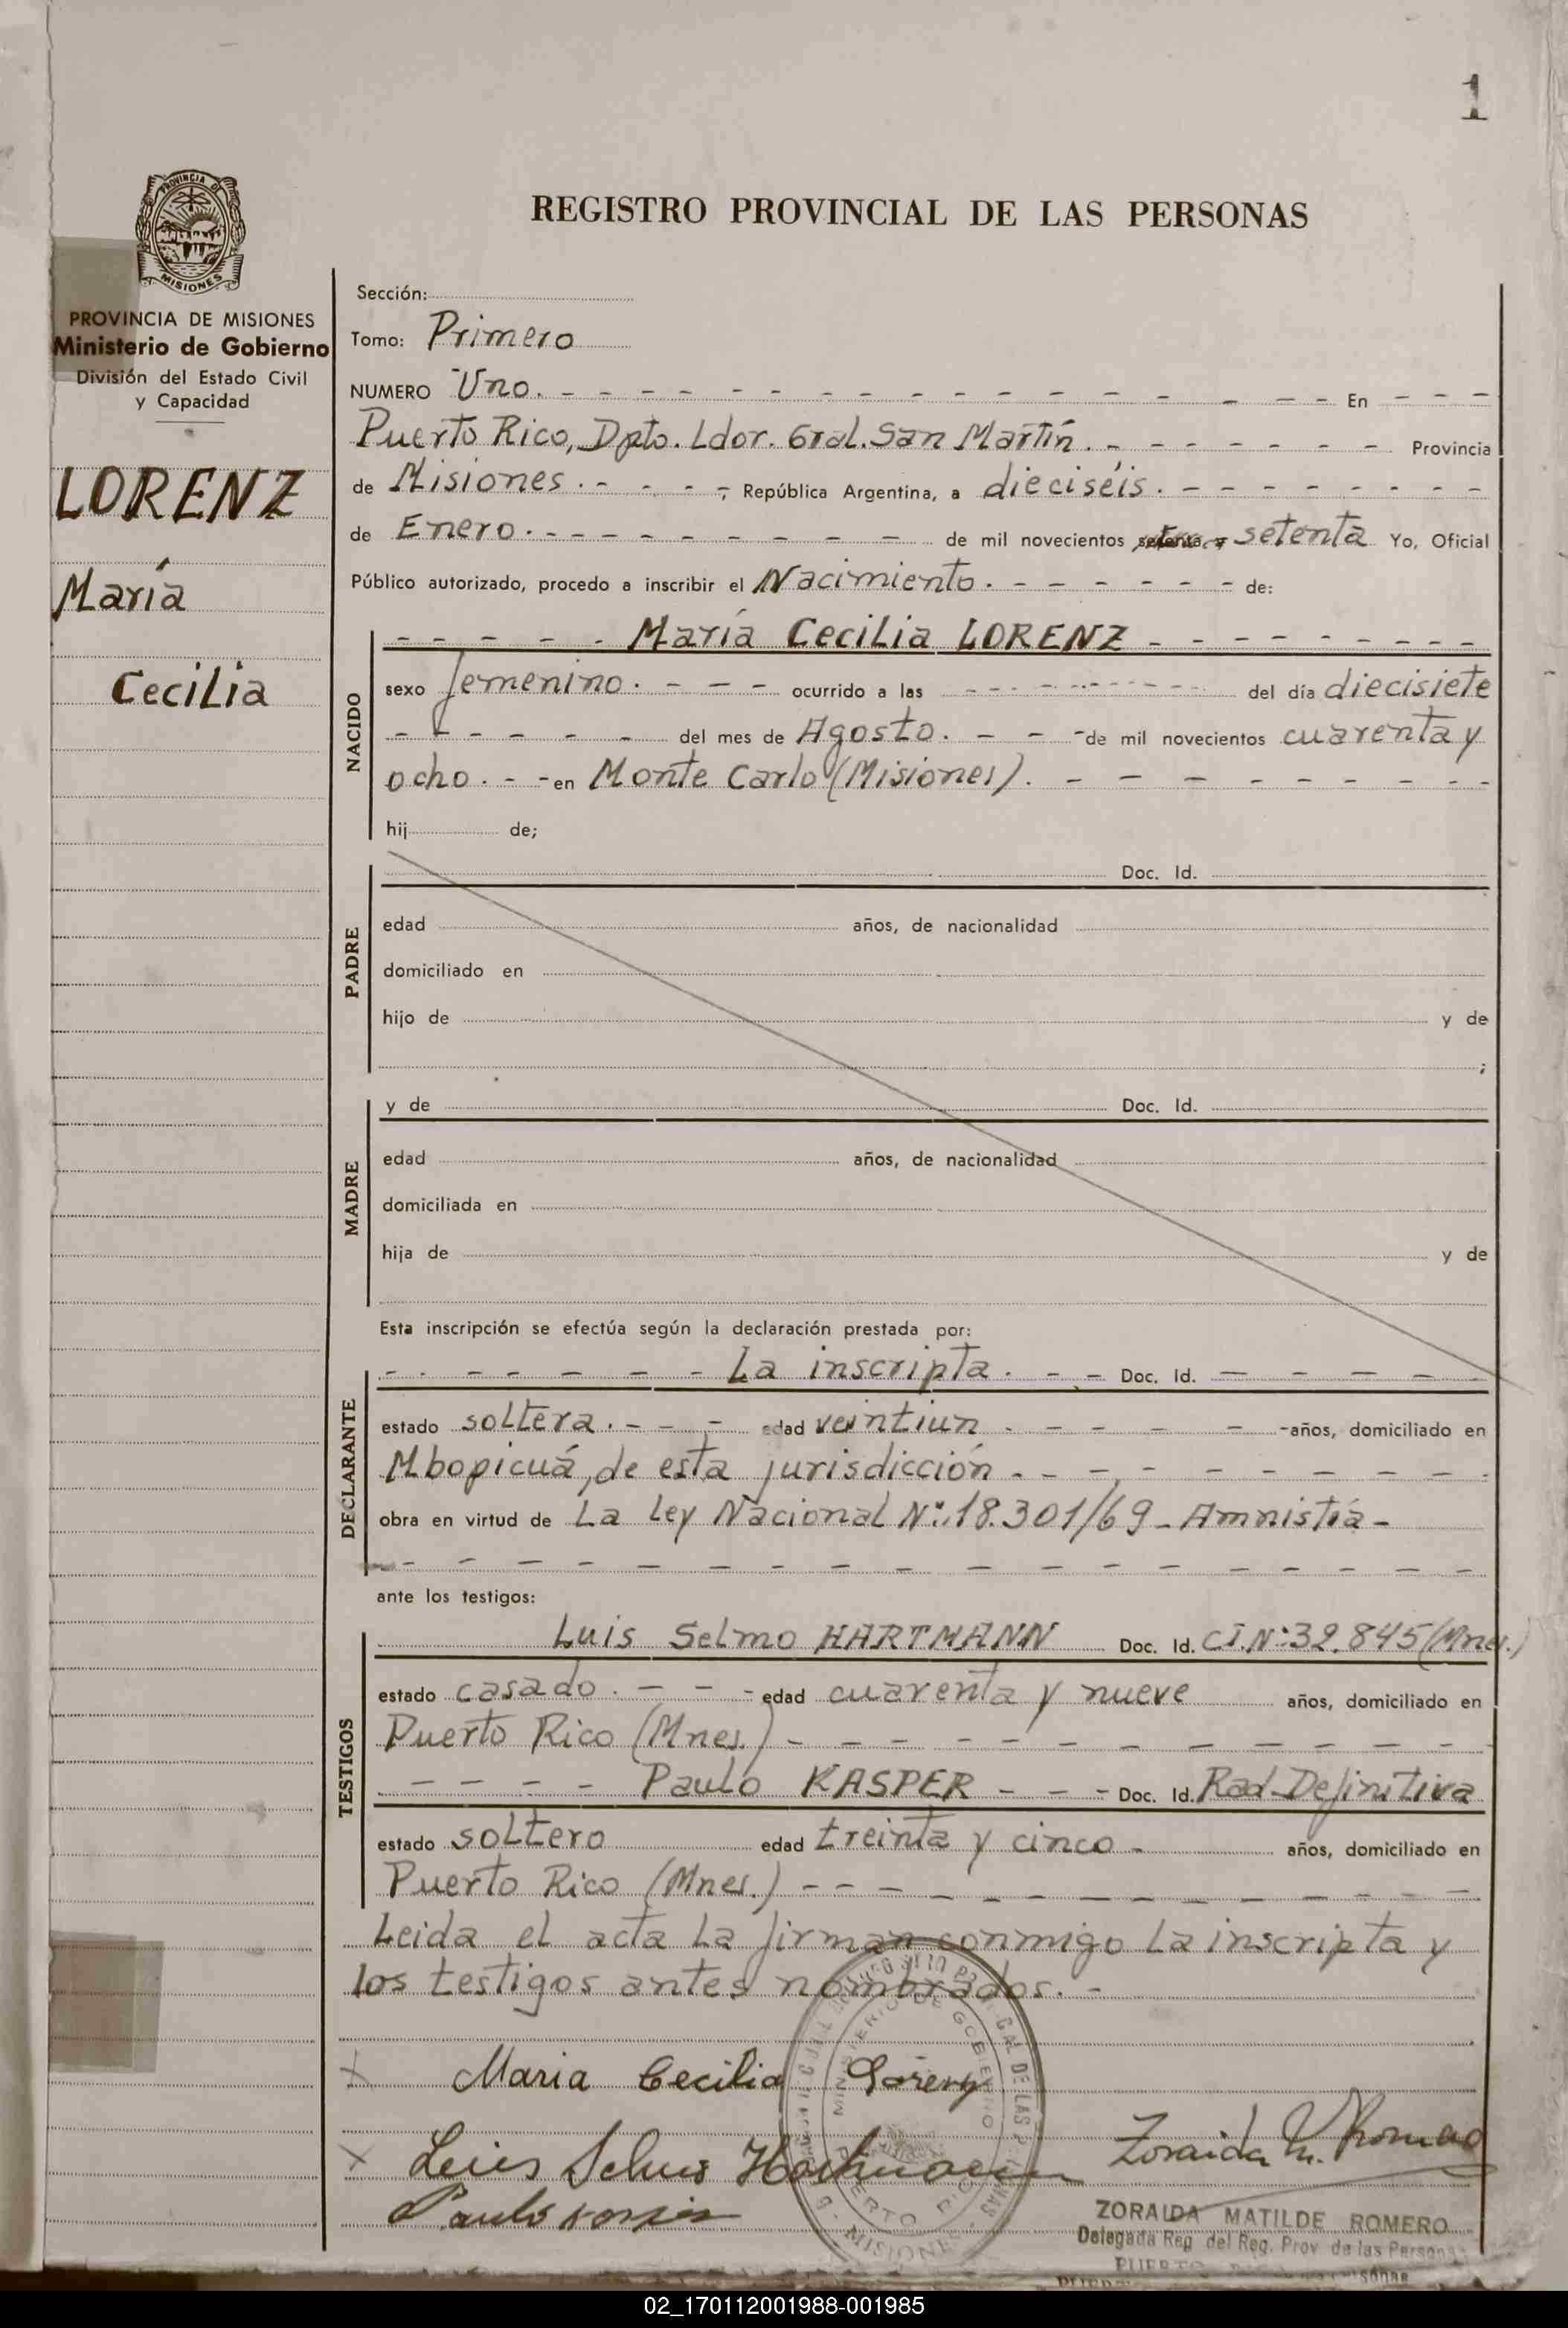 1
PROVINCIA DE
MISIONES
REGISTRO PROVINCIAL DE LAS PERSONAS
PROVINCIA DE MISIONES
Ministerio de Gobierno
División del Estado Civil
y Capacidad
LORENZ
María
Cecilia
Sección:
Tomo: Primero
NUMERO Uno. - - - - - - - - - - - - - - En - - -
Puerto Rico, Dpto. Ldor. Gral. San Martín. - - - - - - - Provincia
de Misiones. - - - -, República Argentina, a dieciséis. - - - - - - - -
de Enero. - - - - - - - - - de mil novecientos setenta Yo, Oficial
Público autorizado, procedo a inscribir el Nacimiento. - - - - - - de:
NACIDO
- - - - - María Cecilia LORENZ - - - - - - - - -
sexo femenino. - - - ocurrido a las - - - - - - - - - del día diecisiete
- - - - - - del mes de Agosto. - - - de mil novecientos cuarenta y
ocho. - - en Monte Carlo (Misiones). - - - - - - - - -
hij de;
PADRE
Doc. Id.
edad años, de nacionalidad
domiciliado en
hijo de y de
;
MADRE
y de Doc. Id.
edad años, de nacionalidad
domiciliada en
hija de y de
Esta inscripción se efectúa según la declaración prestada por:
DECLARANTE
- - - - - - La inscripta. - - Doc. Id. - - - -
estado soltera. - - - edad veintiun - - - - - - años, domiciliado en
Mbopicuá, de esta jurisdicción - - - - - - - - -
obra en virtud de La Ley Nacional Nº: 18.301/69 - Amnistía -
- - - - - - - - - - - - - - - - - -
ante los testigos:
TESTIGOS
Luis Selmo HARTMANN Doc. Id. C.I. Nº: 32.845 (Mnes.)
estado casado. - - - edad cuarenta y nueve años, domiciliado en
Puerto Rico (Mnes.) - - - - - - - - - - -
- - - - Paulo KASPER - - - Doc. Id. Rad. Definitiva
estado soltero edad treinta y cinco - años, domiciliado en
Puerto Rico (Mnes.) - - - - - - - - - - -
Leida el acta la firman conmigo la inscripta y
los testigos antes nombrados. -
x Maria Cecilia Lorenz
x Luis Selmo Hartmann
Zoraida M. Romero
Paulo
MINISTERIO DE GOBIERNO
PUERTO RICO
MISIONES
ZORAIDA MATILDE ROMERO
Delegada Reg. del Reg. Prov. de las Personas
PUERTO
02_170112001988-001985